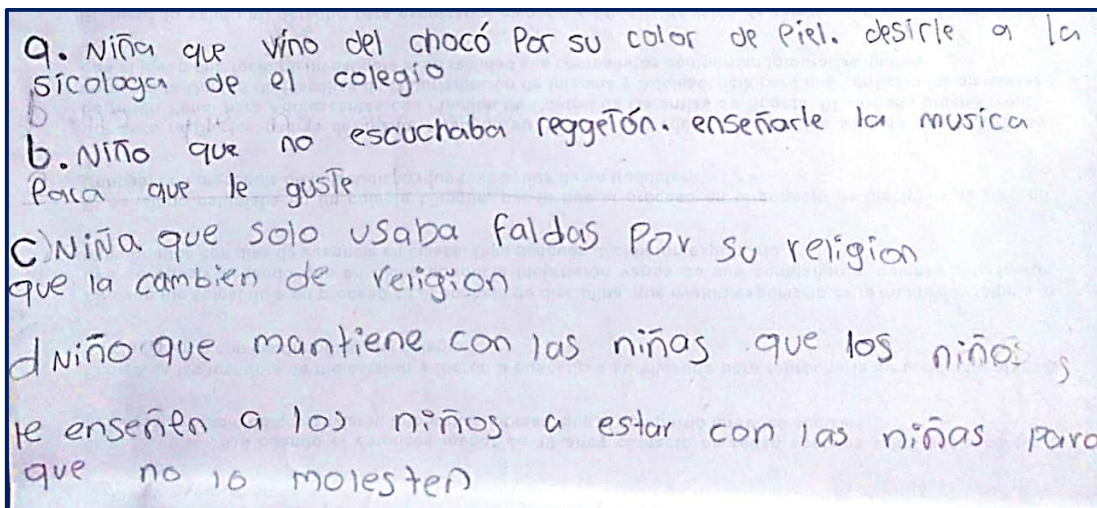 a. Niña que vino del chocó Por su color de Piel. desirle a la
sicologa de el colegio
b. Niño que no escuchaba reggetón. enseñarle la musica
Para que le guste
C) Niña que solo usaba faldas Por su religion
que la cambien de religion
d Niño que mantiene con las niñas que los niños
le enseñen a los niños a estar con las niñas para
que no lo molesten